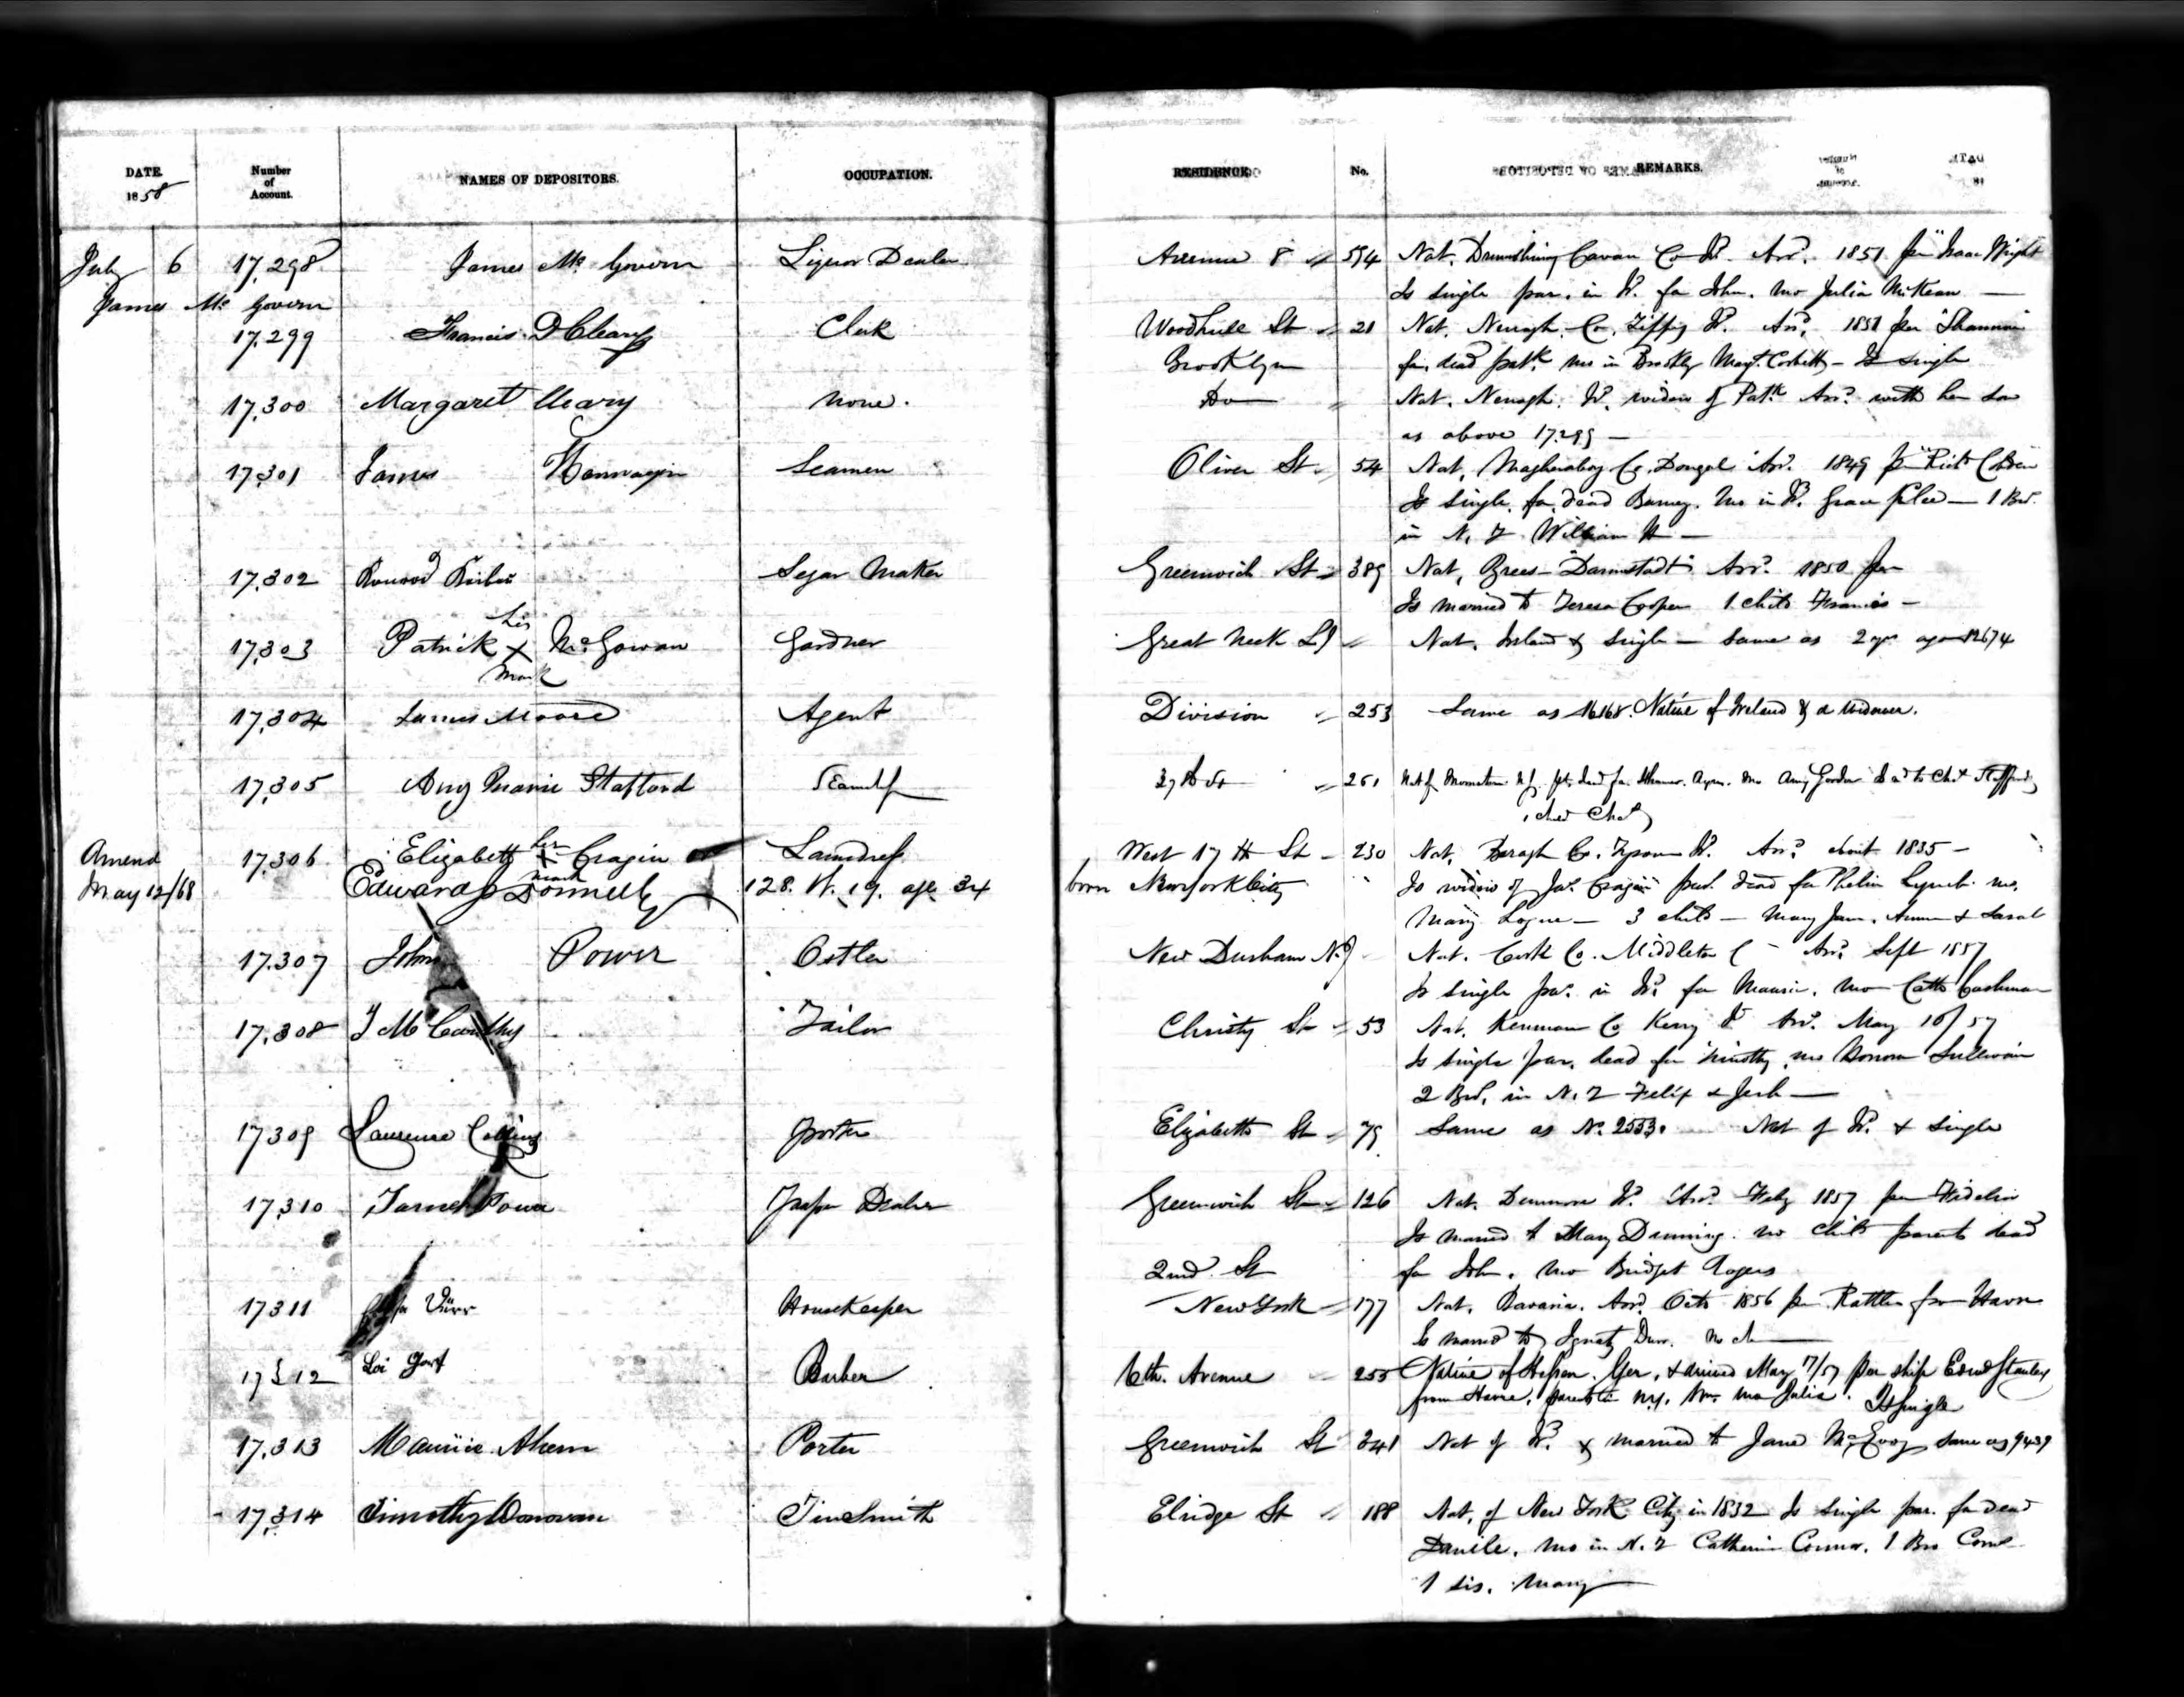 DATE. 1858 Number of Account. NAMES OF DEPOSITORS. OCCUPATION. RESIDENCE. No. REMARKS.
July 6 17,298 James McGovern Liquor Dealer Avenue 8 594 Nat. Cavan Co Id. Arrd. 1851 per Isaac Wright
James McGovern
Is single par. in Id. fa John. mo Julia McKean —
17,299 Francis D Cleary Clerk Woodhull St 21 Nat. Nenagh Co. Tippy Id. Arrd. 1851 per "Shannon"
Brooklyn fa. dead Patk. mo in Brooklyn Margt. Corbett — Is single
17,300 Margaret Cleary None. Do Nat. Nenagh. Id. widow of Patk. Arrd. with her son
as above 17.299 —
17,301 James Hannagin Seamen Oliver St. 54 Nat. Co. Dongal Arrd. 1849 pr "Richd Cobden
Is single. fa. dead Barney. Mo in Id. Grace — 1 Bro.
in N. Y. William H —
17,302 Segar Maker Greenwich St 389 Nat, Darmstadt Arrd. 1850 per
Is married to Teresa Cooper 1 child Francis —
17,303 Patrick his X mark McGowan Gardner Great Neck LI Nat. Ireland & single — same as 2 yrs ago 12674
17,304 James Moore Agent Division 253 Same as 16168. Native of Ireland & a widower.
17,305 Amy Marie Stafford 37th St 261 Nat of N.J. fa. mo Amy Chas Stafford
1 child Chas
Amend 17,306 Elizabeth her X mark Cragin Laundress West 17th St 230 Nat, Co. Tyrone Id. Arrd. about 1835 —
May 12/68 Edward Donnelly 128. W. 19. age 34 born New York City Is widow of Jas. Cragin par. dead fa Phelin Lynch. mo.
Mary Logue — 3 childn — Mary Jane, Annie & Sarah
17,307 John Power Ostler New Durham N.J Nat. Cork Co. Middleton — Arrd. Sept 1857
Is single par. in Id. fa Mauric. mo Cath Cashman
17,308 McCarthy Tailor Christy St 53 Nat. Kenmare Co Kerry Id. Arrd. May 10/57
Is single par. dead fa Timothy. mo Honora Sullivan
2 Bro. in N. Y Felix & Jerh —
17,309 Laurence Collins Porter Elizabeth St 79 Same as No. 2553. Nat of Id. & single
17,310 Dealer Greenwich St 126 Nat. Id. Arrd. Feby 1857 per Fidelia
Is married to Mary no child parents dead
fa John. mo Bridget Rogers
2nd. St
17311 Dürr Housekeeper New York 177 Nat. Bavaria. Arrd. Octo 1856 pr. Rattler from Havre
Is married to Ignatz Durr. no ch
17312 Barber 6th. Avenue 255 Native of Ger. & arrived May 17/57 per ship Edwd Stanley
from Havre. parents in N.Y. mo Julia. Is single
17,313 Maurice Ahern Porter Greenwich St 241 Nat of Id. & married to Jane McEvoy same as 9439
17,314 Timothy Donovan Tinsmith Elridge St 188 Nat, of New York City in 1832 Is single par. fa dead
Daniele. mo in N. Y Catherine Connor. 1 Bro Corne
1 sis. Mary